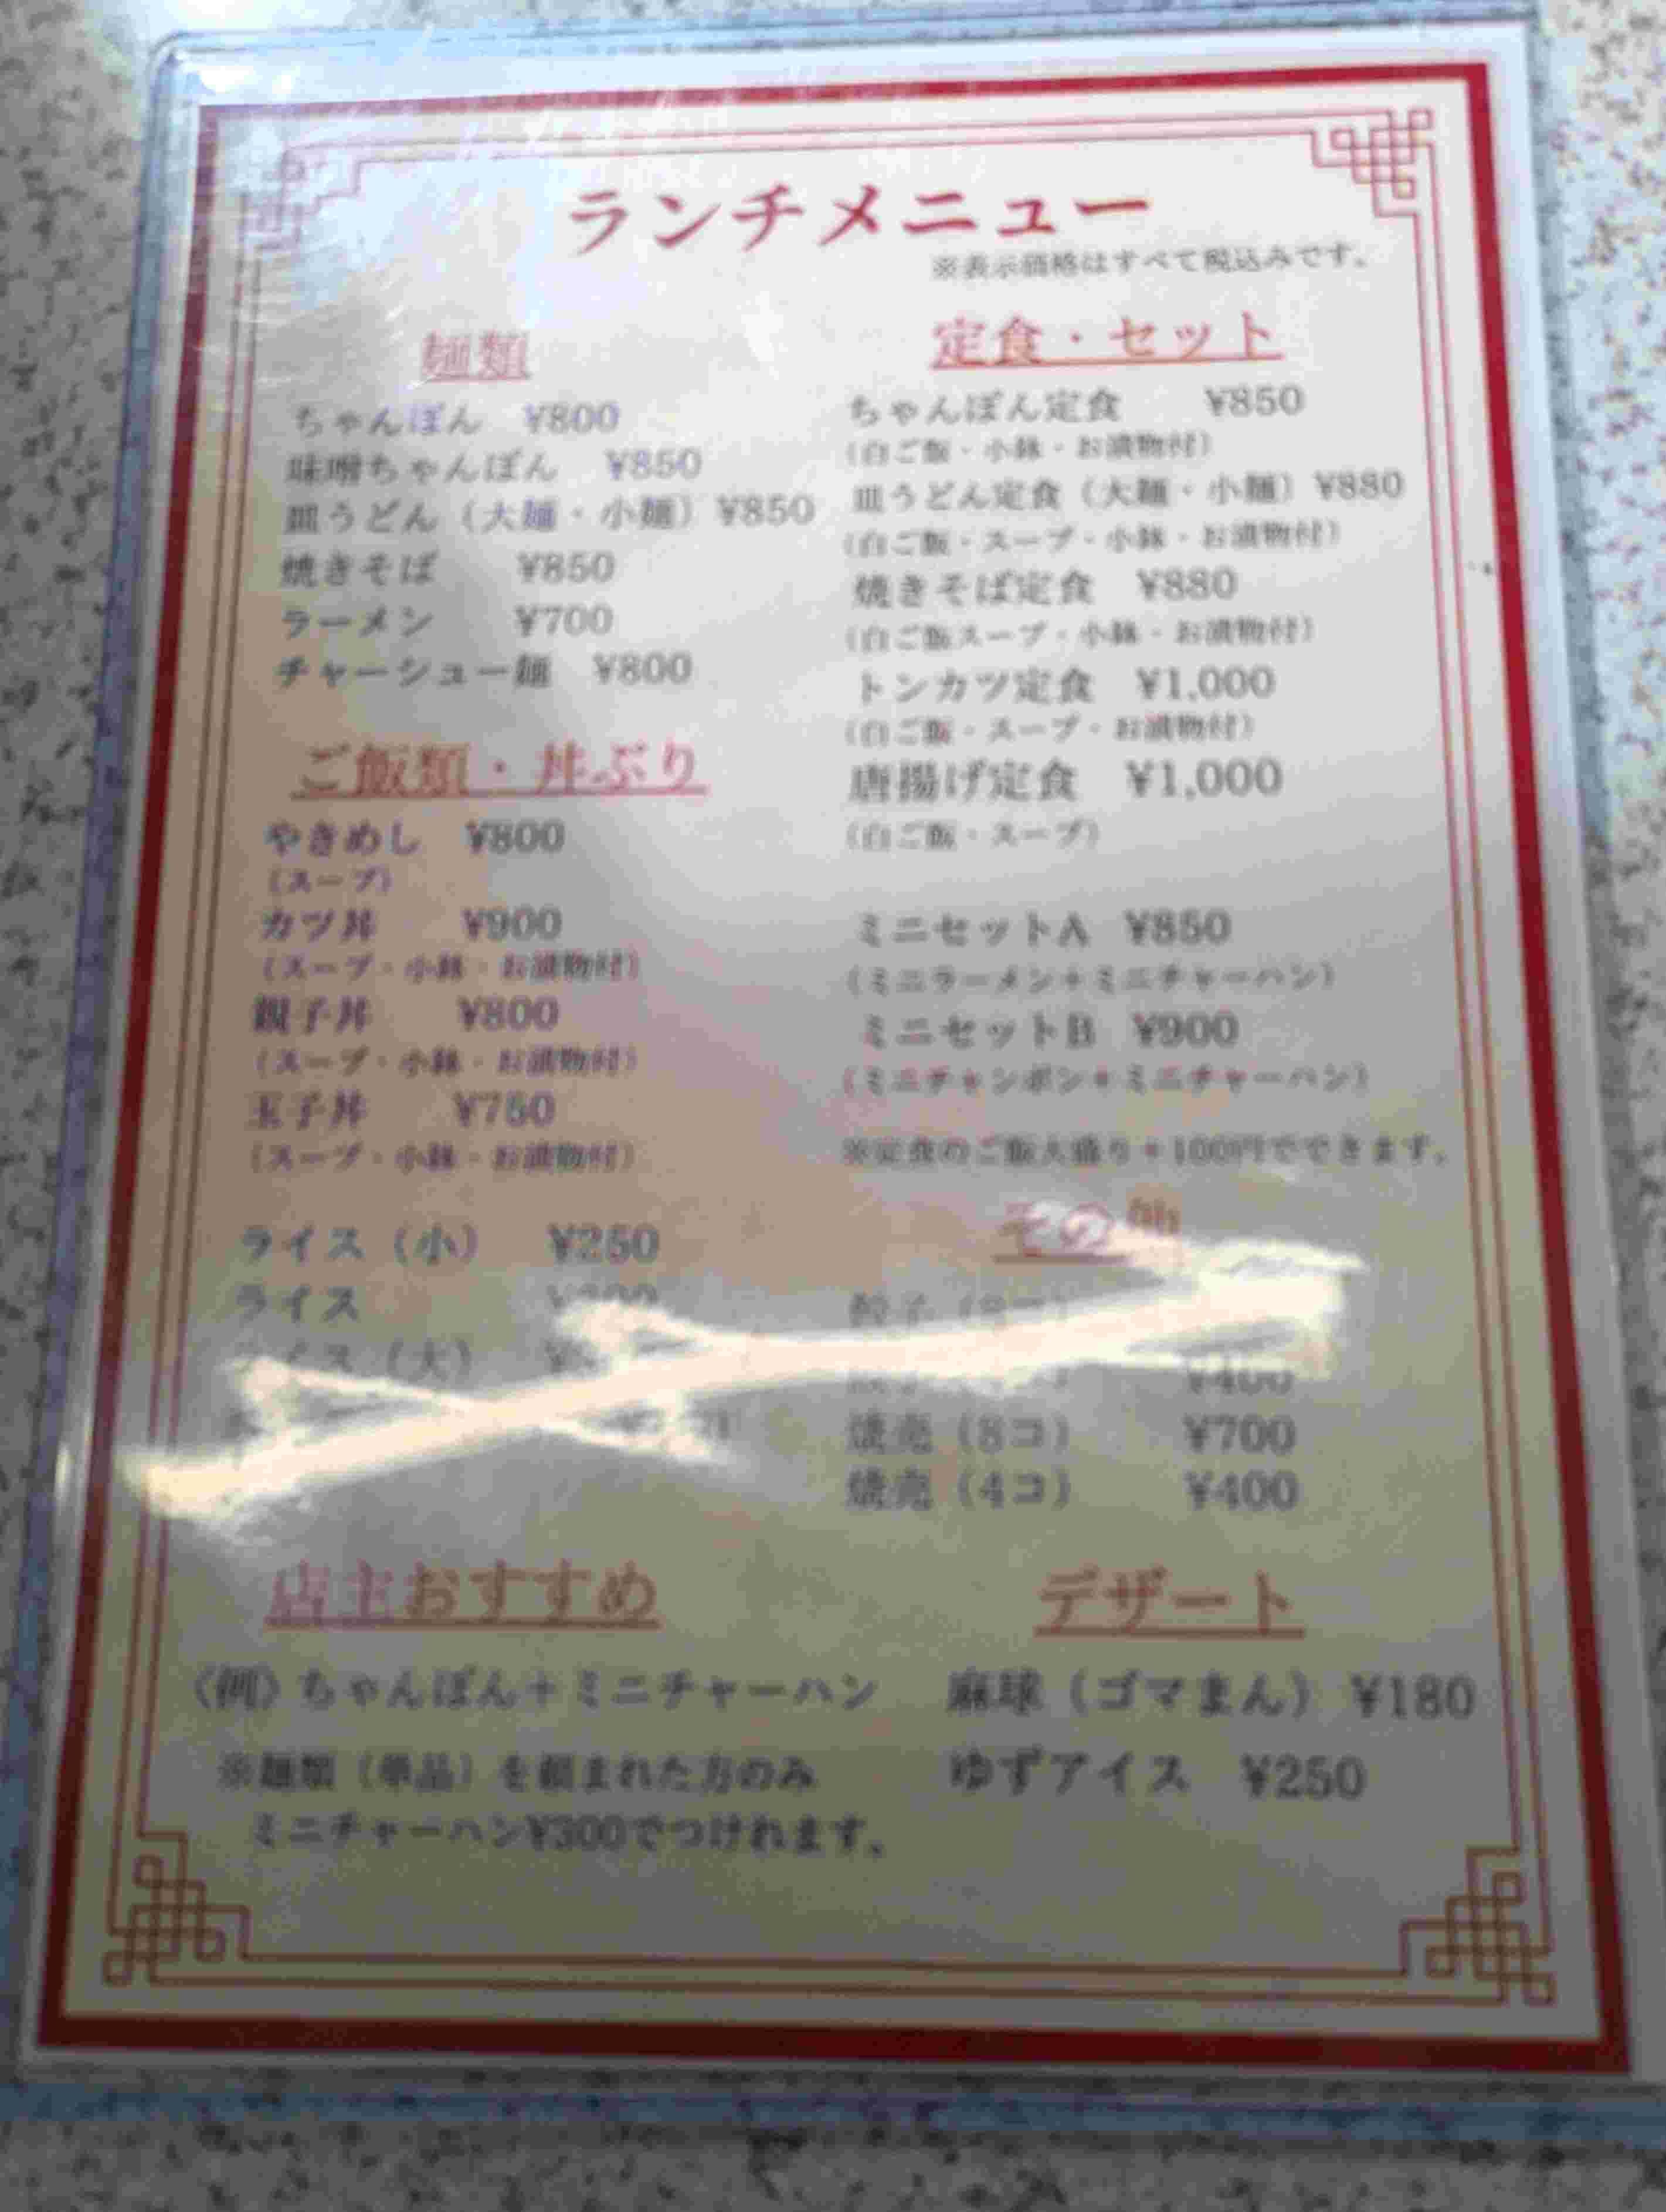 ランチメニュー
※表示価格はすべて税込みです。
麺類
ちゃんぽん ¥800
味噌ちゃんぽん ¥850
皿うどん(大麺・小麺) ¥850
焼きそば ¥850
ラーメン ¥700
チャーシュー麺 ¥800
ご飯類・丼ぶり
やきめし ¥800
(スープ)
カツ丼 ¥900
(スープ・小鉢・お漬物付)
親子丼 ¥800
(スープ・小鉢・お漬物付)
玉子丼 ¥750
(スープ・小鉢・お漬物付)
ライス(小) ¥250
ライス
(大)
店主おすすめ
〈例〉ちゃんぽん+ミニチャーハン
※麺類(単品)を頼まれた方のみ
ミニチャーハン¥300でつけれます。
定食・セット
ちゃんぽん定食 ¥850
(白ご飯・小鉢・お漬物付)
皿うどん定食(大麺・小麺) ¥880
(白ご飯・スープ・小鉢・お漬物付)
焼きそば定食 ¥880
(白ご飯スープ・小鉢・お漬物付)
トンカツ定食 ¥1,000
(白ご飯・スープ・お漬物付)
唐揚げ定食 ¥1,000
(白ご飯・スープ)
ミニセットA ¥850
(ミニラーメン+ミニチャーハン)
ミニセットB ¥900
(ミニチャンポン+ミニチャーハン)
※定食のご飯大盛り+100円でできます。
その他
餃子
¥400
焼売(8コ) ¥700
焼売(4コ) ¥400
デザート
麻球(ゴマまん) ¥180
ゆずアイス ¥250